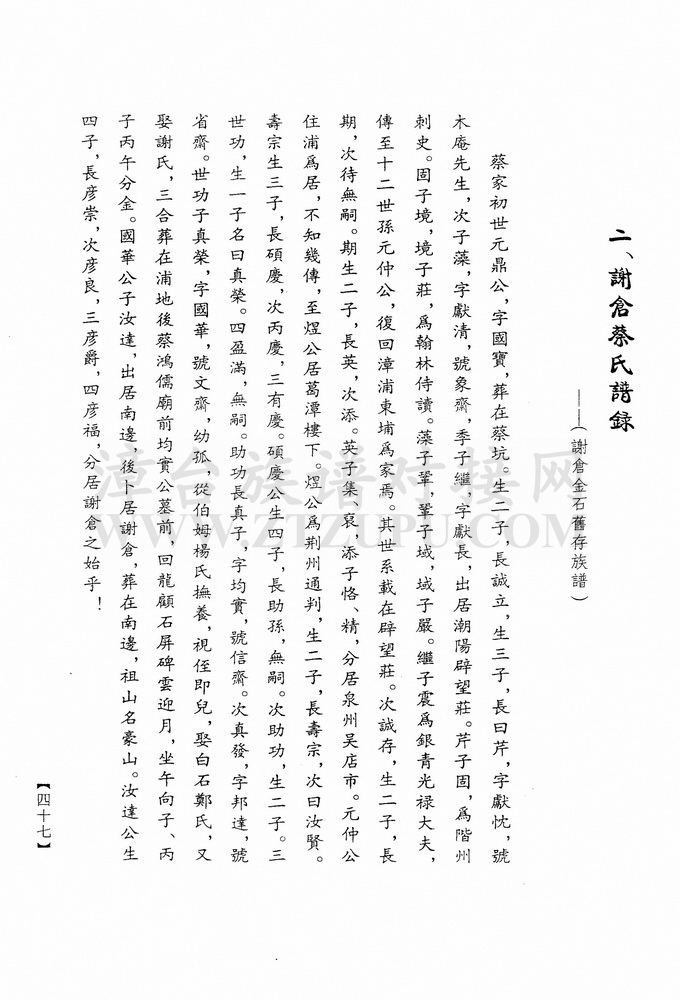 二、謝倉蔡氏譜録
——（謝倉金石舊存族譜）
蔡家初世元鼎公，字國寶，葬在蔡坑。生二子，長誠立，生三子，長曰芹，字獻忱，號
木庵先生，次子藻，字獻清，號象齋，季子繼，字獻長，出居潮陽辟望莊。芹子固，爲階州
刺史。固子境，境子莊，爲翰林侍讀。藻子鞏，鞏子域，域子嚴。繼子震爲銀青光禄大夫，
傳至十二世孫元仲公，復回漳浦東埔爲家焉。其世系載在辟望莊。次誠存，生二子，長
期，次待無嗣。期生二子，長英，次添。英子集、裒，添子恪、精，分居泉州吴店市。元仲公
住浦爲居，不知幾傳，至煜公居葛潭樓下。煜公爲荆州通判，生二子，長壽宗，次曰汝賢。
壽宗生三子，長碩慶，次丙慶，三有慶。碩慶公生四子，長助孫，無嗣。次助功，生二子。三
世功，生一子名曰真榮。四盈滿，無嗣。助功長真子，字均實，號信齋。次真發，字邦達，號
省齋。世功子真榮，字國華，號文齋，幼孤，從伯姆楊氏撫養，視侄即兒，娶白石鄭氏，又
娶謝氏，三合葬在浦地後蔡鴻儒廟前均實公墓前，回龍顧石屏碑雲迎月，坐午向子、丙
子丙午分金。國華公子汝達，出居南邊，後卜居謝倉，葬在南邊，祖山名豪山。汝達公生
四子，長彦崇，次彦良，三彦爵，四彦福，分居謝倉之始乎！
【四十七】
漳台族谱对接网
WWW.ZTZUPU.COM